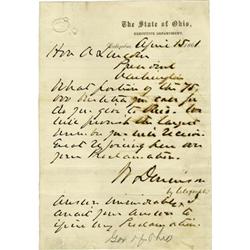 The State of Ohio,
EXECUTIVE DEPARTMENT,
April 15 1861
Hon A Lincoln
President
Washington
What portion of the 75,
000 militia you call for
do you give to Ohio. We
will furnish the largest
number you will receive.
Great rejoicing here over
your Proclamation.
W Dennison
by telegraph
Answer immediately
await your answer to
issue my Proclamation.
Gov of Ohio